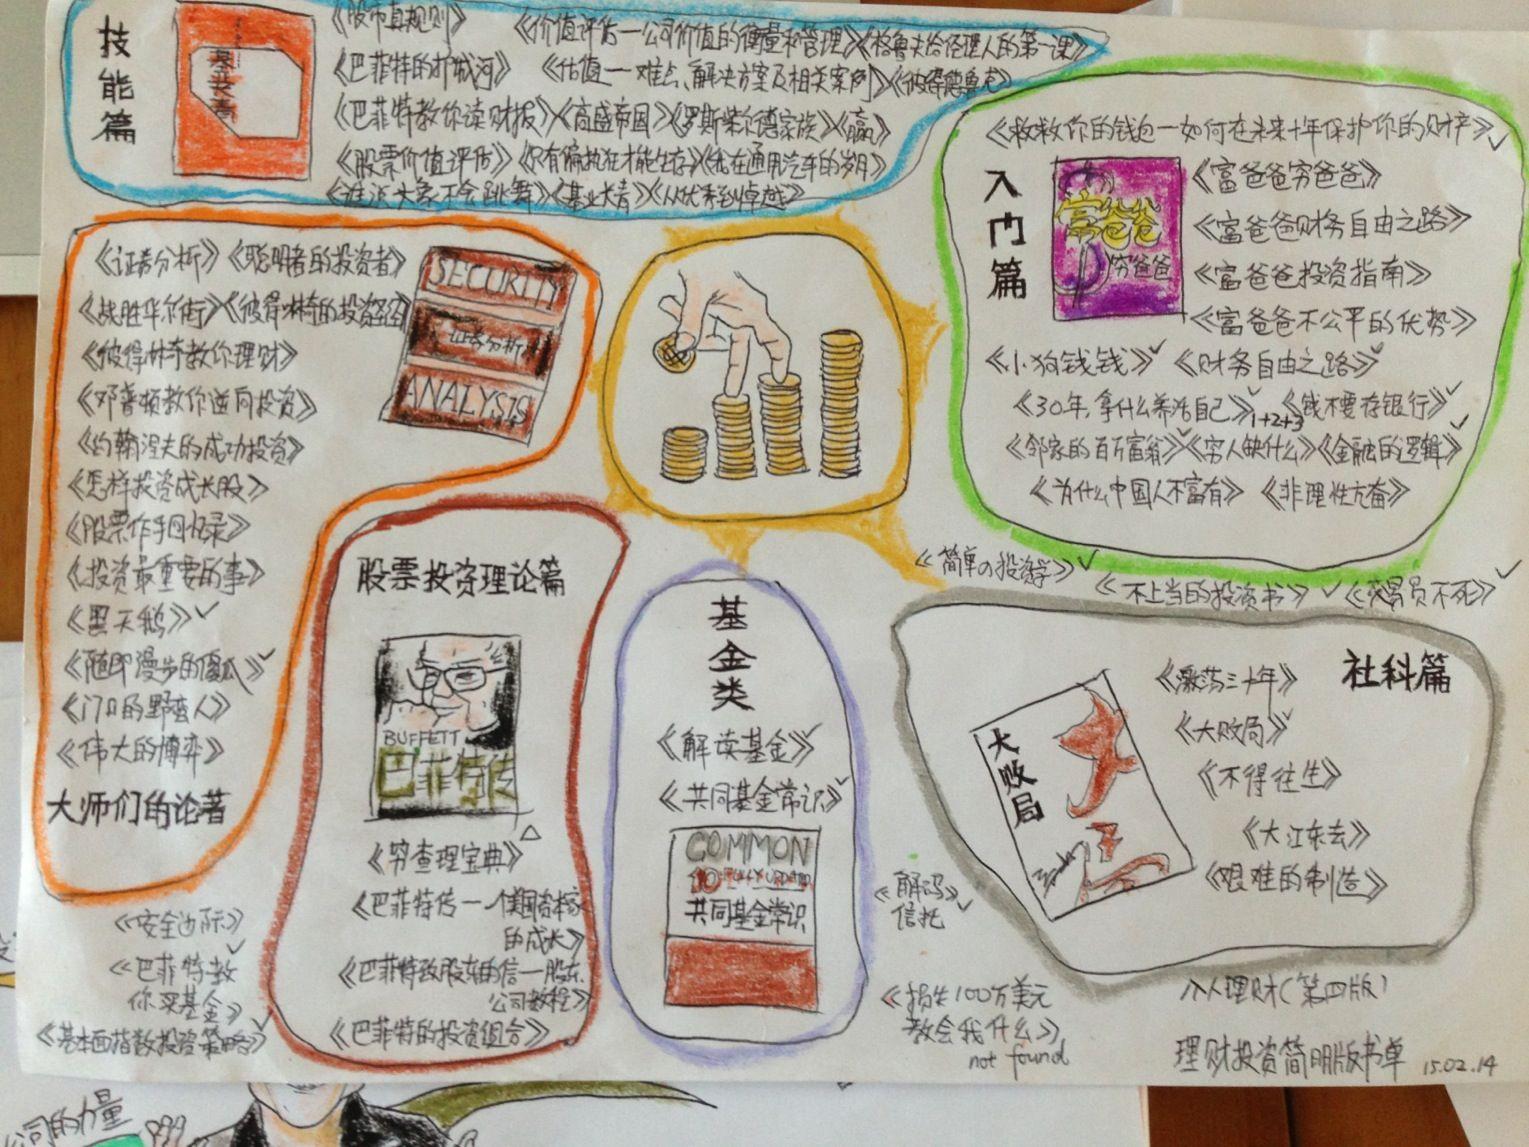 技能篇
基业长青
《股市真规则》 《价值评估—公司价值的衡量和管理》《格鲁夫给经理人的第一课》
《巴菲特的护城河》 《估值—难点、解决方案及相关案例》《彼得德鲁克》
《巴菲特教你读财报》《高盛帝国》《罗斯柴尔德家族》《赢》
《股票价值评估》《只有偏执狂才能生存》《我在通用汽车的岁月》
《谁说大象不会跳舞》《基业长青》《从优秀到卓越》
入门篇
富爸爸
穷爸爸
《救救你的钱包—如何在未来十年保护你的财产》✓
《富爸爸穷爸爸》
《富爸爸财务自由之路》
《富爸爸投资指南》
《富爸爸不公平的优势》
《小狗钱钱》✓ 《财务自由之路》✓
《30年,拿什么养活自己》✓1+2+3 《钱不要存银行》✓
《邻家的百万富翁》✓《穷人缺什么》《金融的逻辑》✓
《为什么中国人不富有》 《非理性亢奋》
《简单の投资学》✓ 《不上当的投资书》✓ 《交易员不死》✓
《证券分析》《聪明者的投资者》
《战胜华尔街》《彼得林奇的投资
《彼得林奇教你理财》
《邓普顿教你逆向投资》
《约翰涅夫的成功投资》
《怎样投资成长股》
《股票作手回忆录》
《投资最重要的事》
《黑天鹅》✓
《随即漫步的傻瓜》✓
《门口的野蛮人》
《伟大的博弈》
大师们的论著
SECURITY
证券分析
ANALYSIS
股票投资理论篇
BUFFETT
巴菲特传
《穷查理宝典》△
《巴菲特传—一个美国资本家
的成长》
《巴菲特致股东的信—股东
公司教程》
《巴菲特的投资组合》
基金类
《解读基金》✓
《共同基金常识》✓
COMMON
10 FULLY UPDATED
共同基金常识
社科篇
大败局
《激荡三十年》
《大败局》✓
《不得往生》
《大江东去》
《艰难的制造》
《安全边际》
《巴菲特教
你买基金》✓
《基本面指数投资策略》✓
《解码
信托》✓
《损失100万美元
教会我什么》
not found
入人理财(第四版)
理财投资简明版书单 15.02.14
公司的力量